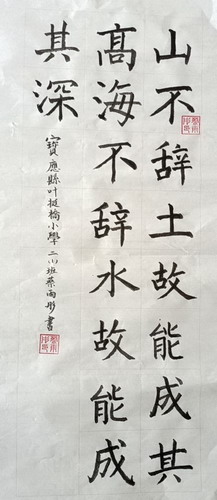 山不辞土故能成其
高海不辞水故能成
其深
寶應縣叶挺橋小學二(1)班蔡雨彤書